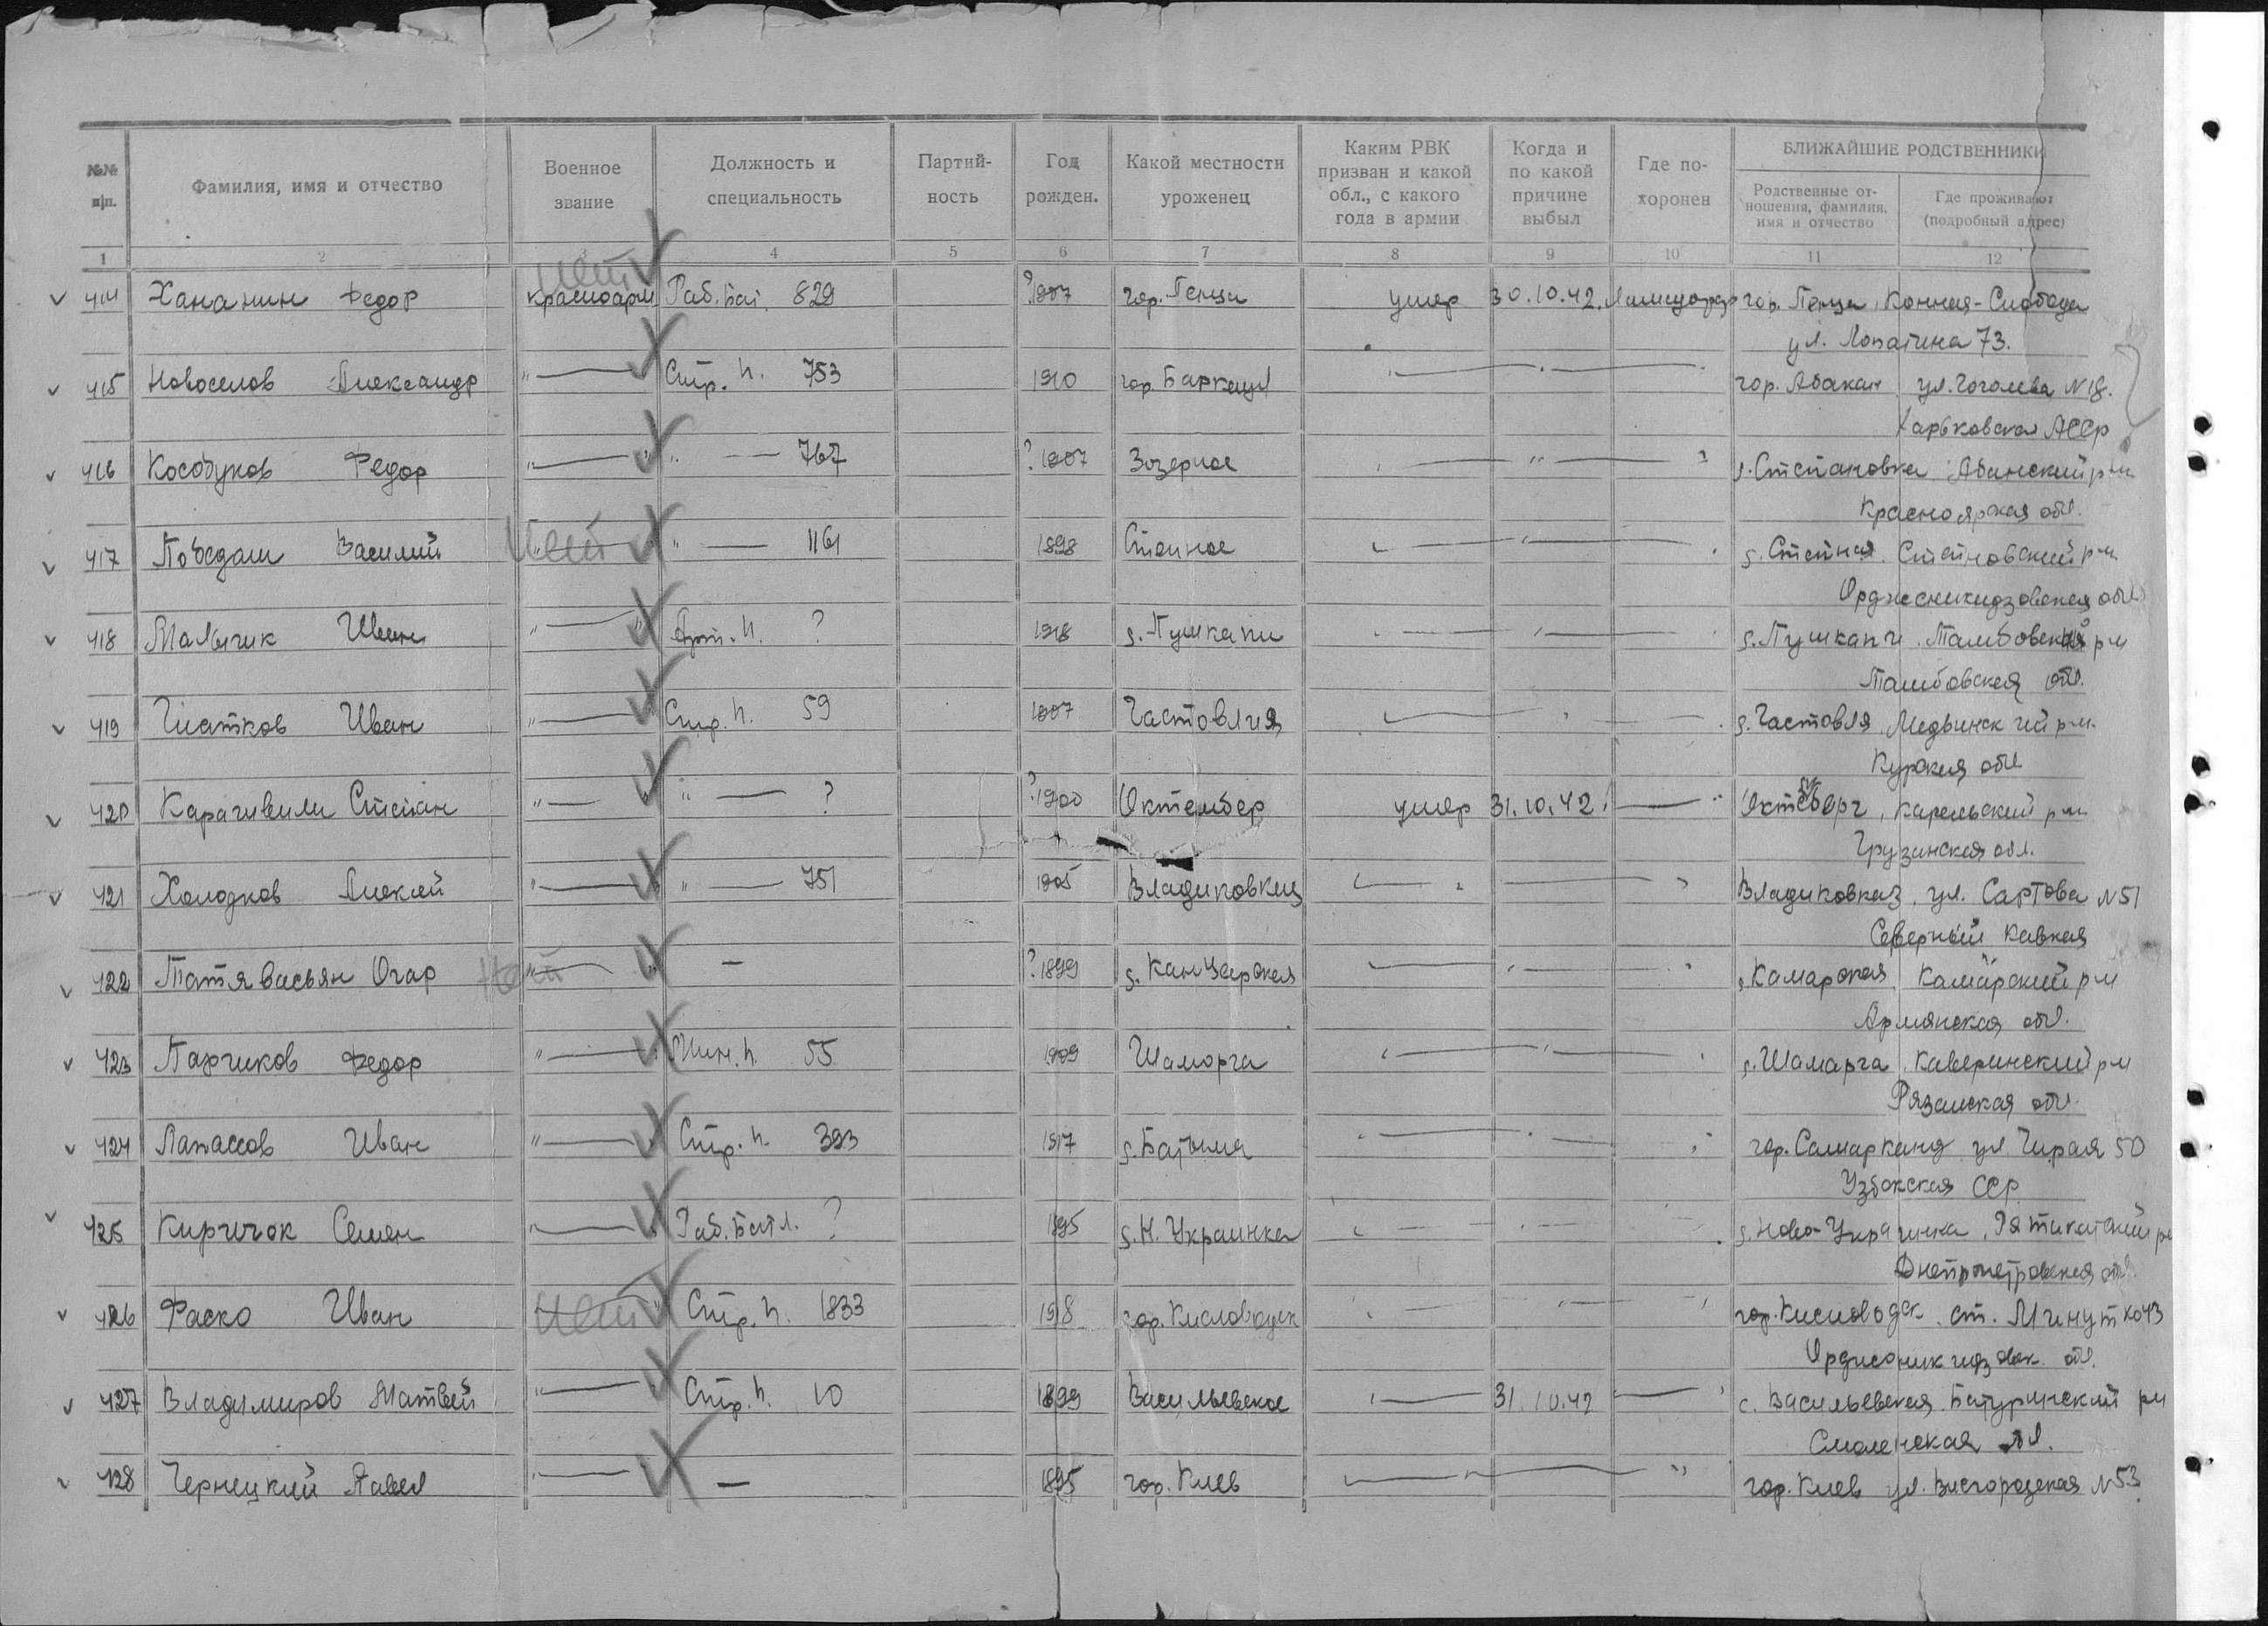 №№ п/п. Фамилия, имя и отчество Военное звание Должность и специальность Партийность Год рожден. Какой местности уроженец Каким РВК призван и какой обл., с какого года в армии Когда и по какой причине выбыл Где похоронен БЛИЖАЙШИЕ РОДСТВЕННИКИ
Родственные отношения, фамилия, имя и отчество Где проживают (подробный адрес)
1 2 3 4 5 6 7 8 9 10 11 12
нет
414 Хананин Федор красноарм Раб. Бат. 829 ?1907 гор. Пенза умер 30.10.42. гор. Пенза, Конная-Слобода
ул. Лопатина 73.
415 Новоселов Александр " — Стр. п. 753 1910 гор. " — " — гор. Абакан ул. Гоголева N 18.
АССР
416 Кособуков Федор " — " — 767 ?1907 Зозерное " — " — " д. Степановка Абанский р-н
Красноярская обл.
417 Победаш Василий нет " — " — 1161 1898 Степное " — " — " с. Степная Степновский р-н
Орджесникидзовская обл
418 Мальчик Иван " — " Арт. п. ? 1918 д. Пушкани " — " — д. Пушкани Тамбовский р-н
Тамбовская обл.
419 Гнатков Иван " — " Стр. п. 59 1907 Гастовлия " — " — д. Гастовля Медвинский р-н.
Курская обл
420 Карагивили Степан " — " " — ? ?1900 Октембер умер 31.10.42. — " Октеберг, Карельский р-н
Грузинская обл.
421 Холодков Алексей " — " " — 751 1905 Владиковкиц " — " — " Владиковказ, ул. Сартова N 51
Северный Кавказ
422 Татявасьян Огар нет " — " — ?1899 " — " — " Камарская Камарский р-н
Армянская обл.
423 Парчиков Федор " — " Мин. п. 55 1909 Шаморга " — " — " д. Шамарга Каверинский р-н
Рязанская обл.
424 Лапассов Иван " — " Стр. п. 393 1917 " — " — " гор. Самарканд ул. 50
Узбокская ССР
425 Киричок Семен " — " Раб. Батл. ? 1895 д. Н. Украинка " — " — д. Ново-Украинка
Днепрпетровская обл.
426 Фаско Иван нет Стр. п. 1833 1918 гор. Кисловодск " — " — " гор. Кисловодск ст. Минутко 43
Орджоникидзовск. обл.
427 Владимиров Матвей " — Стр. п. 10 1899 Васильевское " — 31.10.42 — " с. Васильевская Батуринский р-н
Смоленская обл.
428 Чернецкий Павел " — — 1895 гор. Киев " — " — " гор. Киев ул. Висгородская N 53